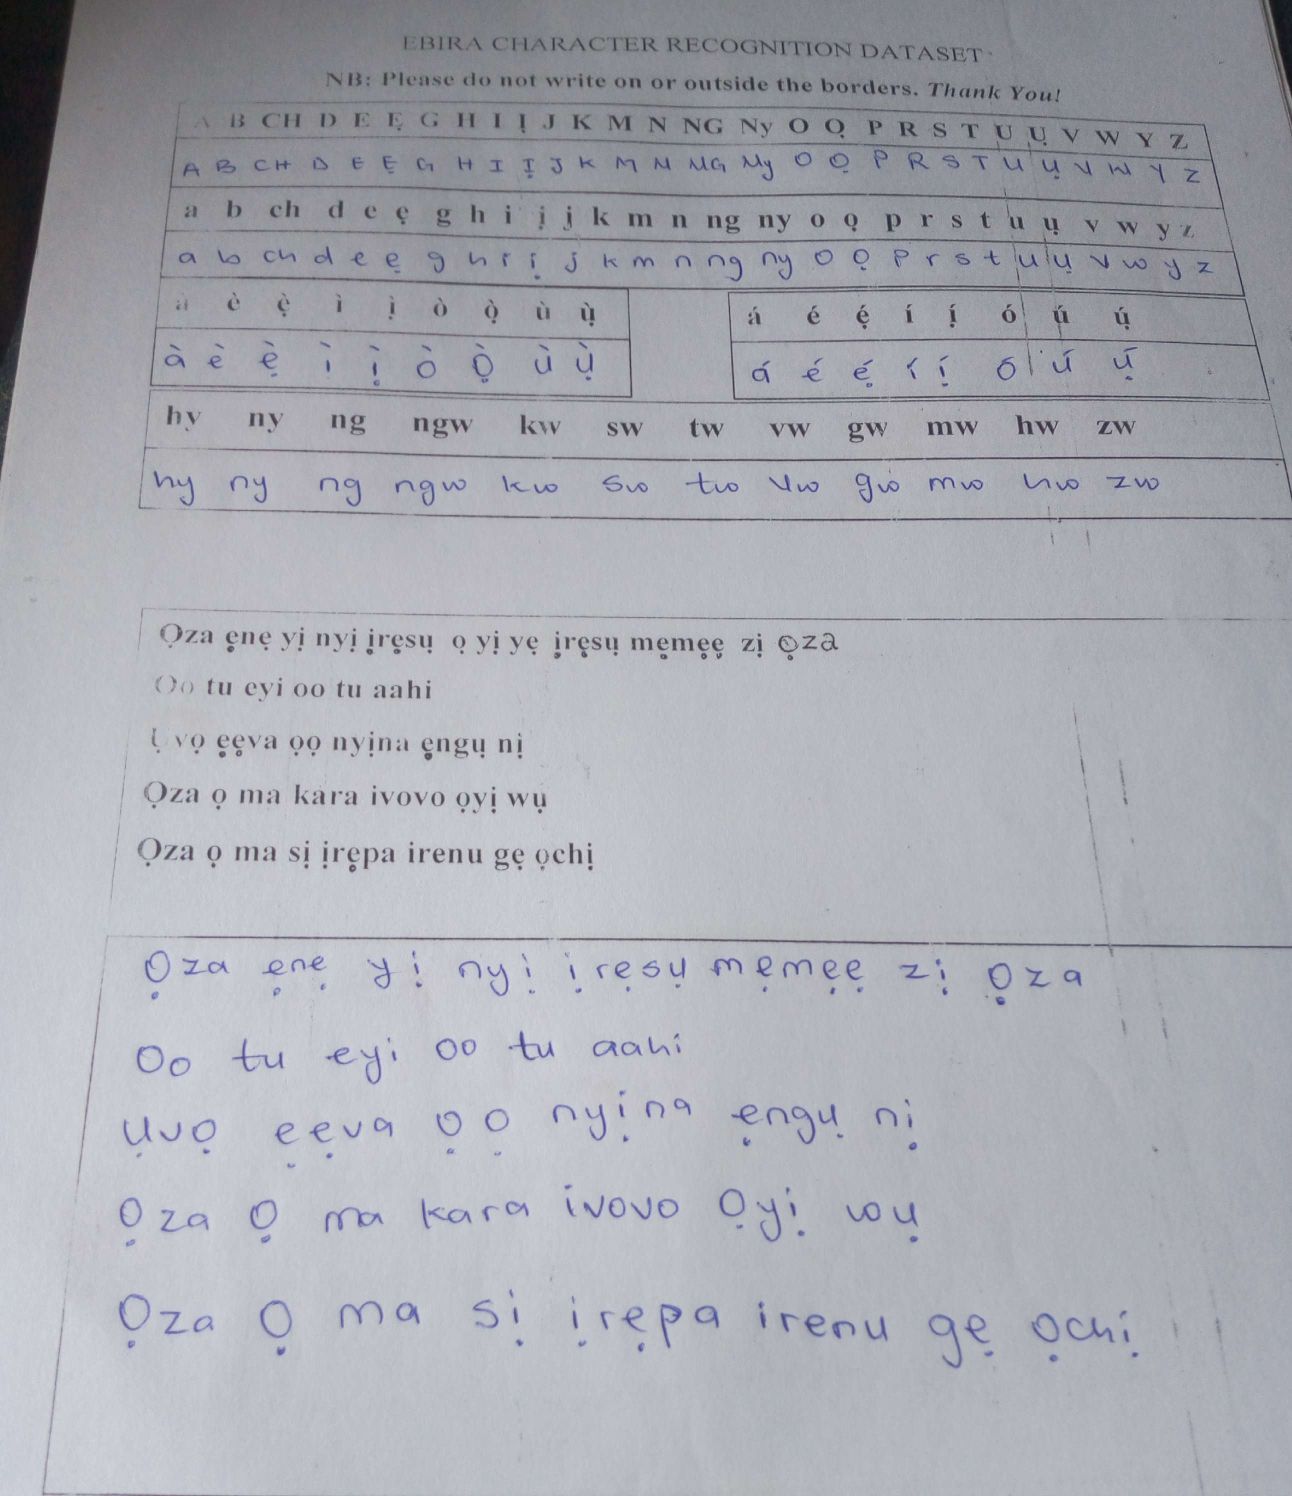 EBIRA CHARACTER RECOGNITION DATASET
NB: Please do not write on or outside the borders. Thank You!
A B CH D E Ẹ G H I Ị J K M N NG Ny O Ọ P R S T U Ụ V W Y Z
A B CH D E Ẹ G H I Ị J K M N NG Ny O Ọ P R S T U Ụ V W Y Z
a b ch d e ẹ g h i ị j k m n ng ny o ọ p r s t u ụ v w y z
a b ch d e ẹ g h i ị j k m n ng ny o ọ p r s t u ụ v w y z
à è ẹ̀ ì ị̀ ò ọ̀ ù ụ̀ á é ẹ́ í ị́ ó ú ụ́
à è ẹ̀ ì ị̀ ò ọ̀ ù ụ̀ á é ẹ́ í ị́ ó ú ụ́
hy ny ng ngw kw sw tw vw gw mw hw zw
hy ny ng ngw kw sw tw vw gw mw hw zw
Ọza ẹnẹ yị nyị ịrẹsụ ọ yị yẹ ịrẹsụ mẹmẹẹ zị ọza
Oo tu eyi oo tu aahi
Ụvọ ẹẹva ọọ nyịna ẹngụ nị
Ọza ọ ma kara ivovo ọyị wụ
Ọza ọ ma sị ịrẹpa irenu gẹ ọchị
Ọza ẹnẹ yị nyị ịrẹsụ mẹmẹẹ zị Ọza
Oo tu eyi oo tu aahi
Ụvọ ẹẹva ọọ nyịna ẹngụ nị
Ọza Ọ ma kara ivovo Ọyị wụ
Ọza Ọ ma sị ịrẹpa irenu gẹ Ọchị